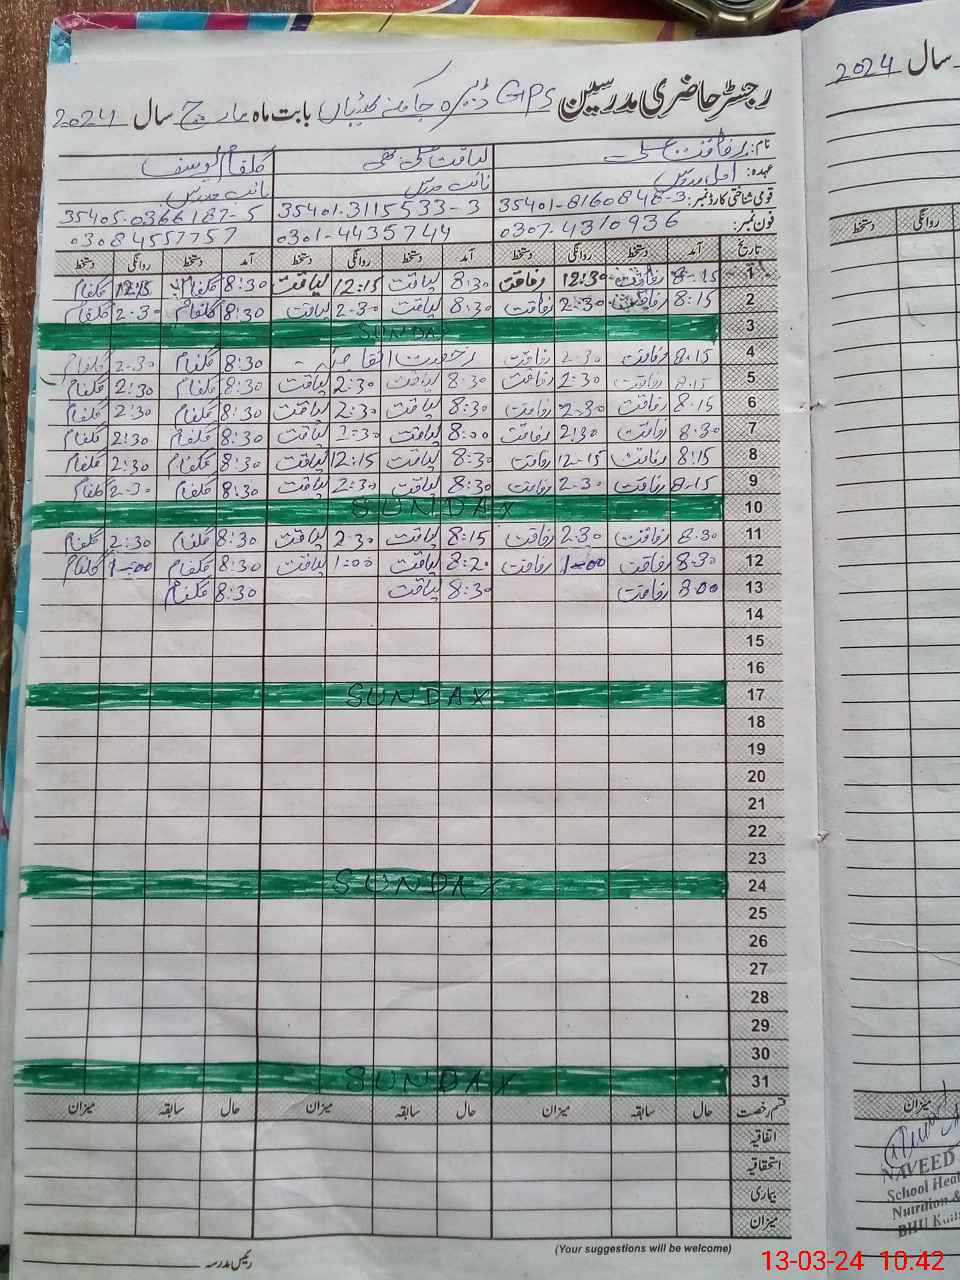 رجسٹر حاضری مدرسین GPS ڈیرہ بابت ماہ مارچ سال 2024
نام: رفاقت علی لیاقت علی بھٹی گلفام یوسف
عہدہ: اول مدرس نائب مدرس نائب مدرس
قومی شناختی کارڈ نمبر: 35401-8160848-3 35401-3115533-3 35405-0366187-5
فون نمبر: 0307-4310936 0301-4435744 03084557757
تاریخ آمد دستخط روانگی دستخط آمد دستخط روانگی دستخط آمد دستخط روانگی دستخط
1 8-15 رفاقت 12:30 رفاقت 8:30 لیاقت 12:15 لیاقت 8:30 گلفام 12:15 گلفام
2 8:15 رفاقت 2:30 رفاقت 8:30 لیاقت 2-30 لیاقت 8:30 گلفام 2-30 گلفام
3 SUNDAY
4 8.15 رفاقت 2:30 رفاقت رخصت اتفاقیہ 8:30 گلفام 2-30 گلفام
5 8.15 رفاقت 2:30 رفاقت 8:30 لیاقت 2:30 لیاقت 8:30 گلفام 2:30 گلفام
6 8.15 رفاقت 2-30 رفاقت 8:30 لیاقت 2:30 لیاقت 8:30 گلفام 2:30 گلفام
7 8.30 رفاقت 2:30 رفاقت 8:00 لیاقت 2:30 لیاقت 8:30 گلفام 2:30 گلفام
8 8:15 رفاقت 12-15 رفاقت 8:30 لیاقت 12:15 لیاقت 8:30 گلفام 2:30 گلفام
9 8-15 رفاقت 2-30 رفاقت 8:30 لیاقت 2:30 لیاقت 8:30 گلفام 2-30 گلفام
10 SUNDAY
11 8.30 رفاقت 2:30 رفاقت 8:15 لیاقت 2:30 لیاقت 8:30 گلفام 2:30 گلفام
12 8-30 رفاقت 1-00 رفاقت 8:20 لیاقت 1:00 لیاقت 8:30 گلفام 1-00 گلفام
13 8.00 رفاقت 8:30 لیاقت 8:30 گلفام
14
15
16
17 SUNDAY
18
19
20
21
22
23
24 SUNDAY
25
26
27
28
29
30
31 SUNDAY
قسم رخصت حال سابقہ میزان حال سابقہ میزان حال سابقہ میزان
اتفاقیہ
استحقاقیہ
بیماری
میزان
(Your suggestions will be welcome)
رئیس مدرسہ
سال 2024
روانگی دستخط
میزان
NAVEED
School Heal
Nutrition &
BHU
13-03-24 10.42